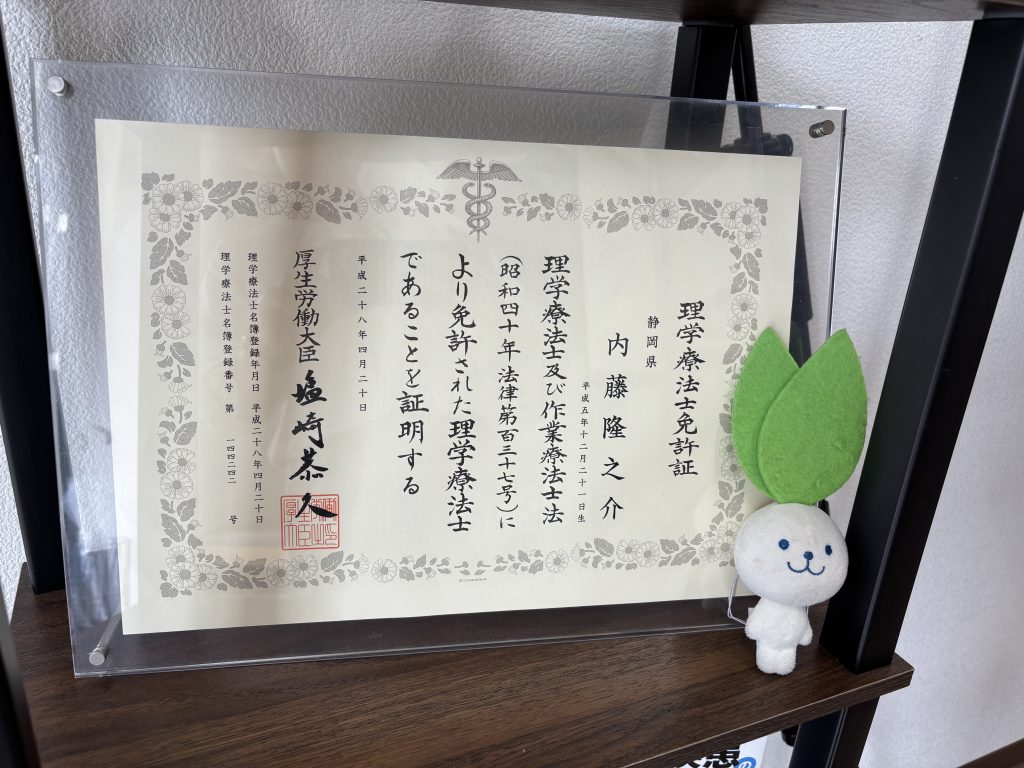 理学療法士免許証
静岡県
内藤隆之介
平成五年十二月二十一日生
理学療法士及び作業療法士法
(昭和四十年法律第百三十七号)に
より免許された理学療法士
であることを証明する
平成二十八年四月二十日
厚生労働大臣 塩崎恭久
理学療法士名簿登録年月日 平成二十八年四月二十日
理学療法士名簿登録番号 第 一四四二四二 号